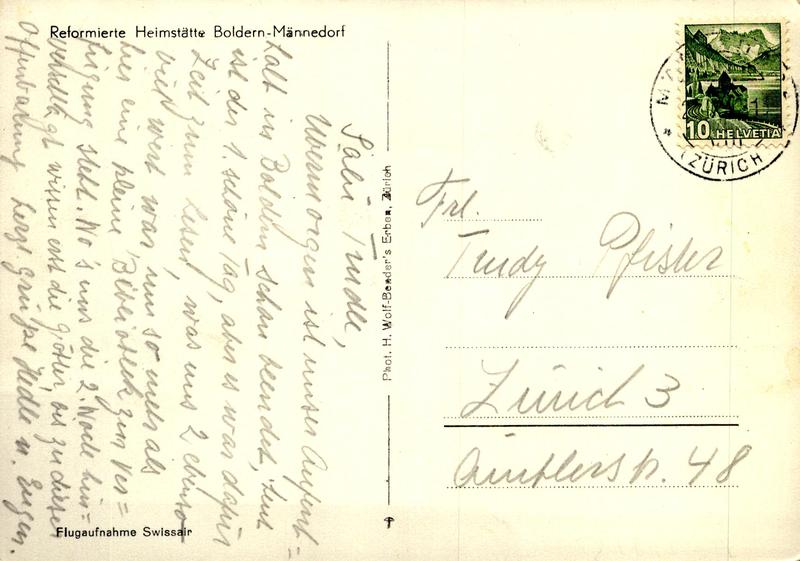 Reformierte Heimstätte Boldern-Männedorf
Salü Trudle,
Übermorgen ist unser Aufent=
halt in Boldern schon beendet, heut
ist der 1. schöne Tag, aber es war dafür
Zeit zum Lesen, was uns 2 ebenso
viel wert war, um so mehr als
hier eine kleine Bibliothek zur Ver=
fügung steht. Wo's uns die 2. Woche hin=
verschlägt wissen erst die Götter, bis zu dieser
Offenbarung herzl. Grüsse Hedle u. Eugen.
Flugaufnahme Swissair
Phot. H. Wolf-Bender's Erben, Zürich
10 HELVETIA
(ZÜRICH)
Frl.
Trudy Pfister
Zürich 3
Aemtlerstr. 48